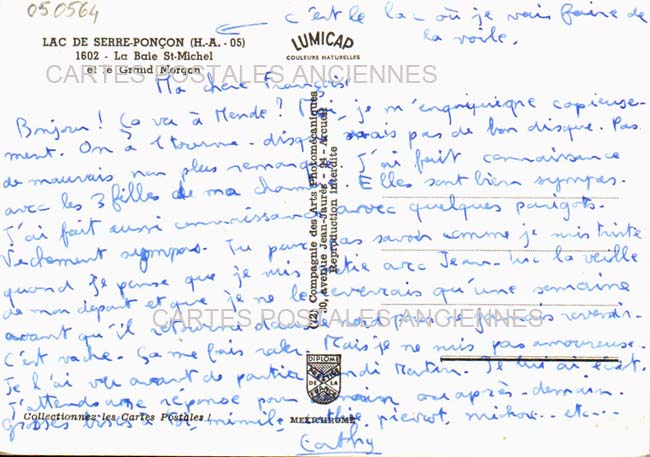 050564
c'est le lac où je vais faire de
la voile.
LAC DE SERRE-PONÇON (H.-A. - 05)
1602 - La Baie St-Michel
et le Grand Morgon
LUMICAP
COULEURS NATURELLES
CARTES POSTALES ANCIENNES
Ma chère Françoise
Bonjour ! Ça va à Mende ? Moi, je m'enquiquine copieuse-
ment. On a 1 tourne-disque mais pas de bon disque. Pas
de mauvais non plus remarque. J'ai fait connaissance
avec les 3 filles de ma chambre. Elles sont bien sympas.
J'ai fait aussi connaissance avec quelques parigots.
Vachement sympas. Tu peux pas savoir comme je suis triste
quand je pense que je suis avec Jean-Luc la veille
de mon départ et que je ne le reverrais qu'une semaine
avant qu'il retourne dans
C'est vache. Ça me fait raler. Mais je ne suis pas amoureuse.
Je l'ai vu avant de partir lundi matin. Je lui ai écrit.
J'attends une réponse pour demain ou après-demain.
Grosses bises à pierrot, etc...
Cathy
(72) Compagnie des Arts Photomécaniques
10, avenue Jean-Jaurès - 94 - Arcueil
Reproduction interdite
CARTES POSTALES ANCIENNES
DIPLOME
DE LA
Collectionnez les Cartes Postales !
MEXICHROME